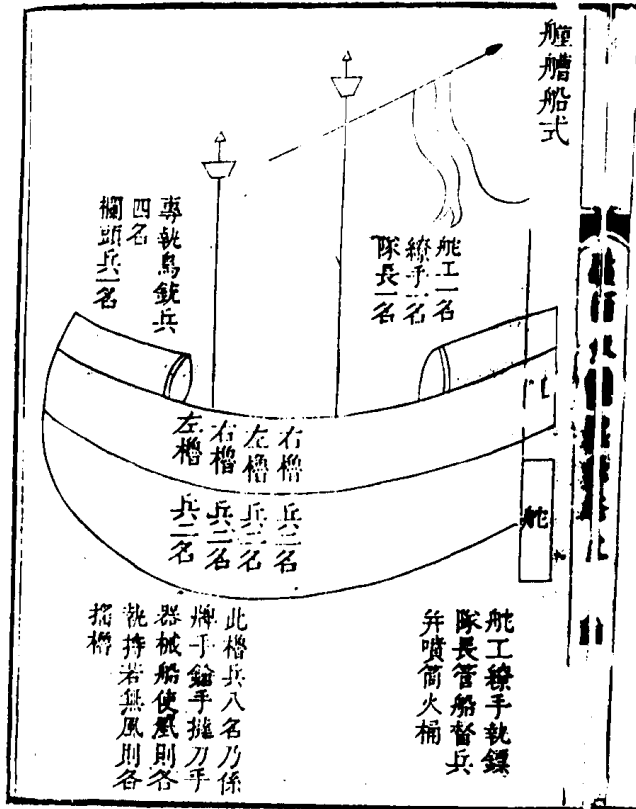 艟艚船式
舵工一名
繚手一名
隊長一名
專執鳥銃兵
四名
欄頭兵一名
右櫓 兵二名
左櫓 兵二名
右櫓 兵二名
左櫓 兵二名
舵
舵工繚手執鏢
隊長管船督兵
并噴筒火桶
此櫓兵八名乃係
牌手鎗手㨯刀手
器械船使風則各
執持若無風則各
搖櫓